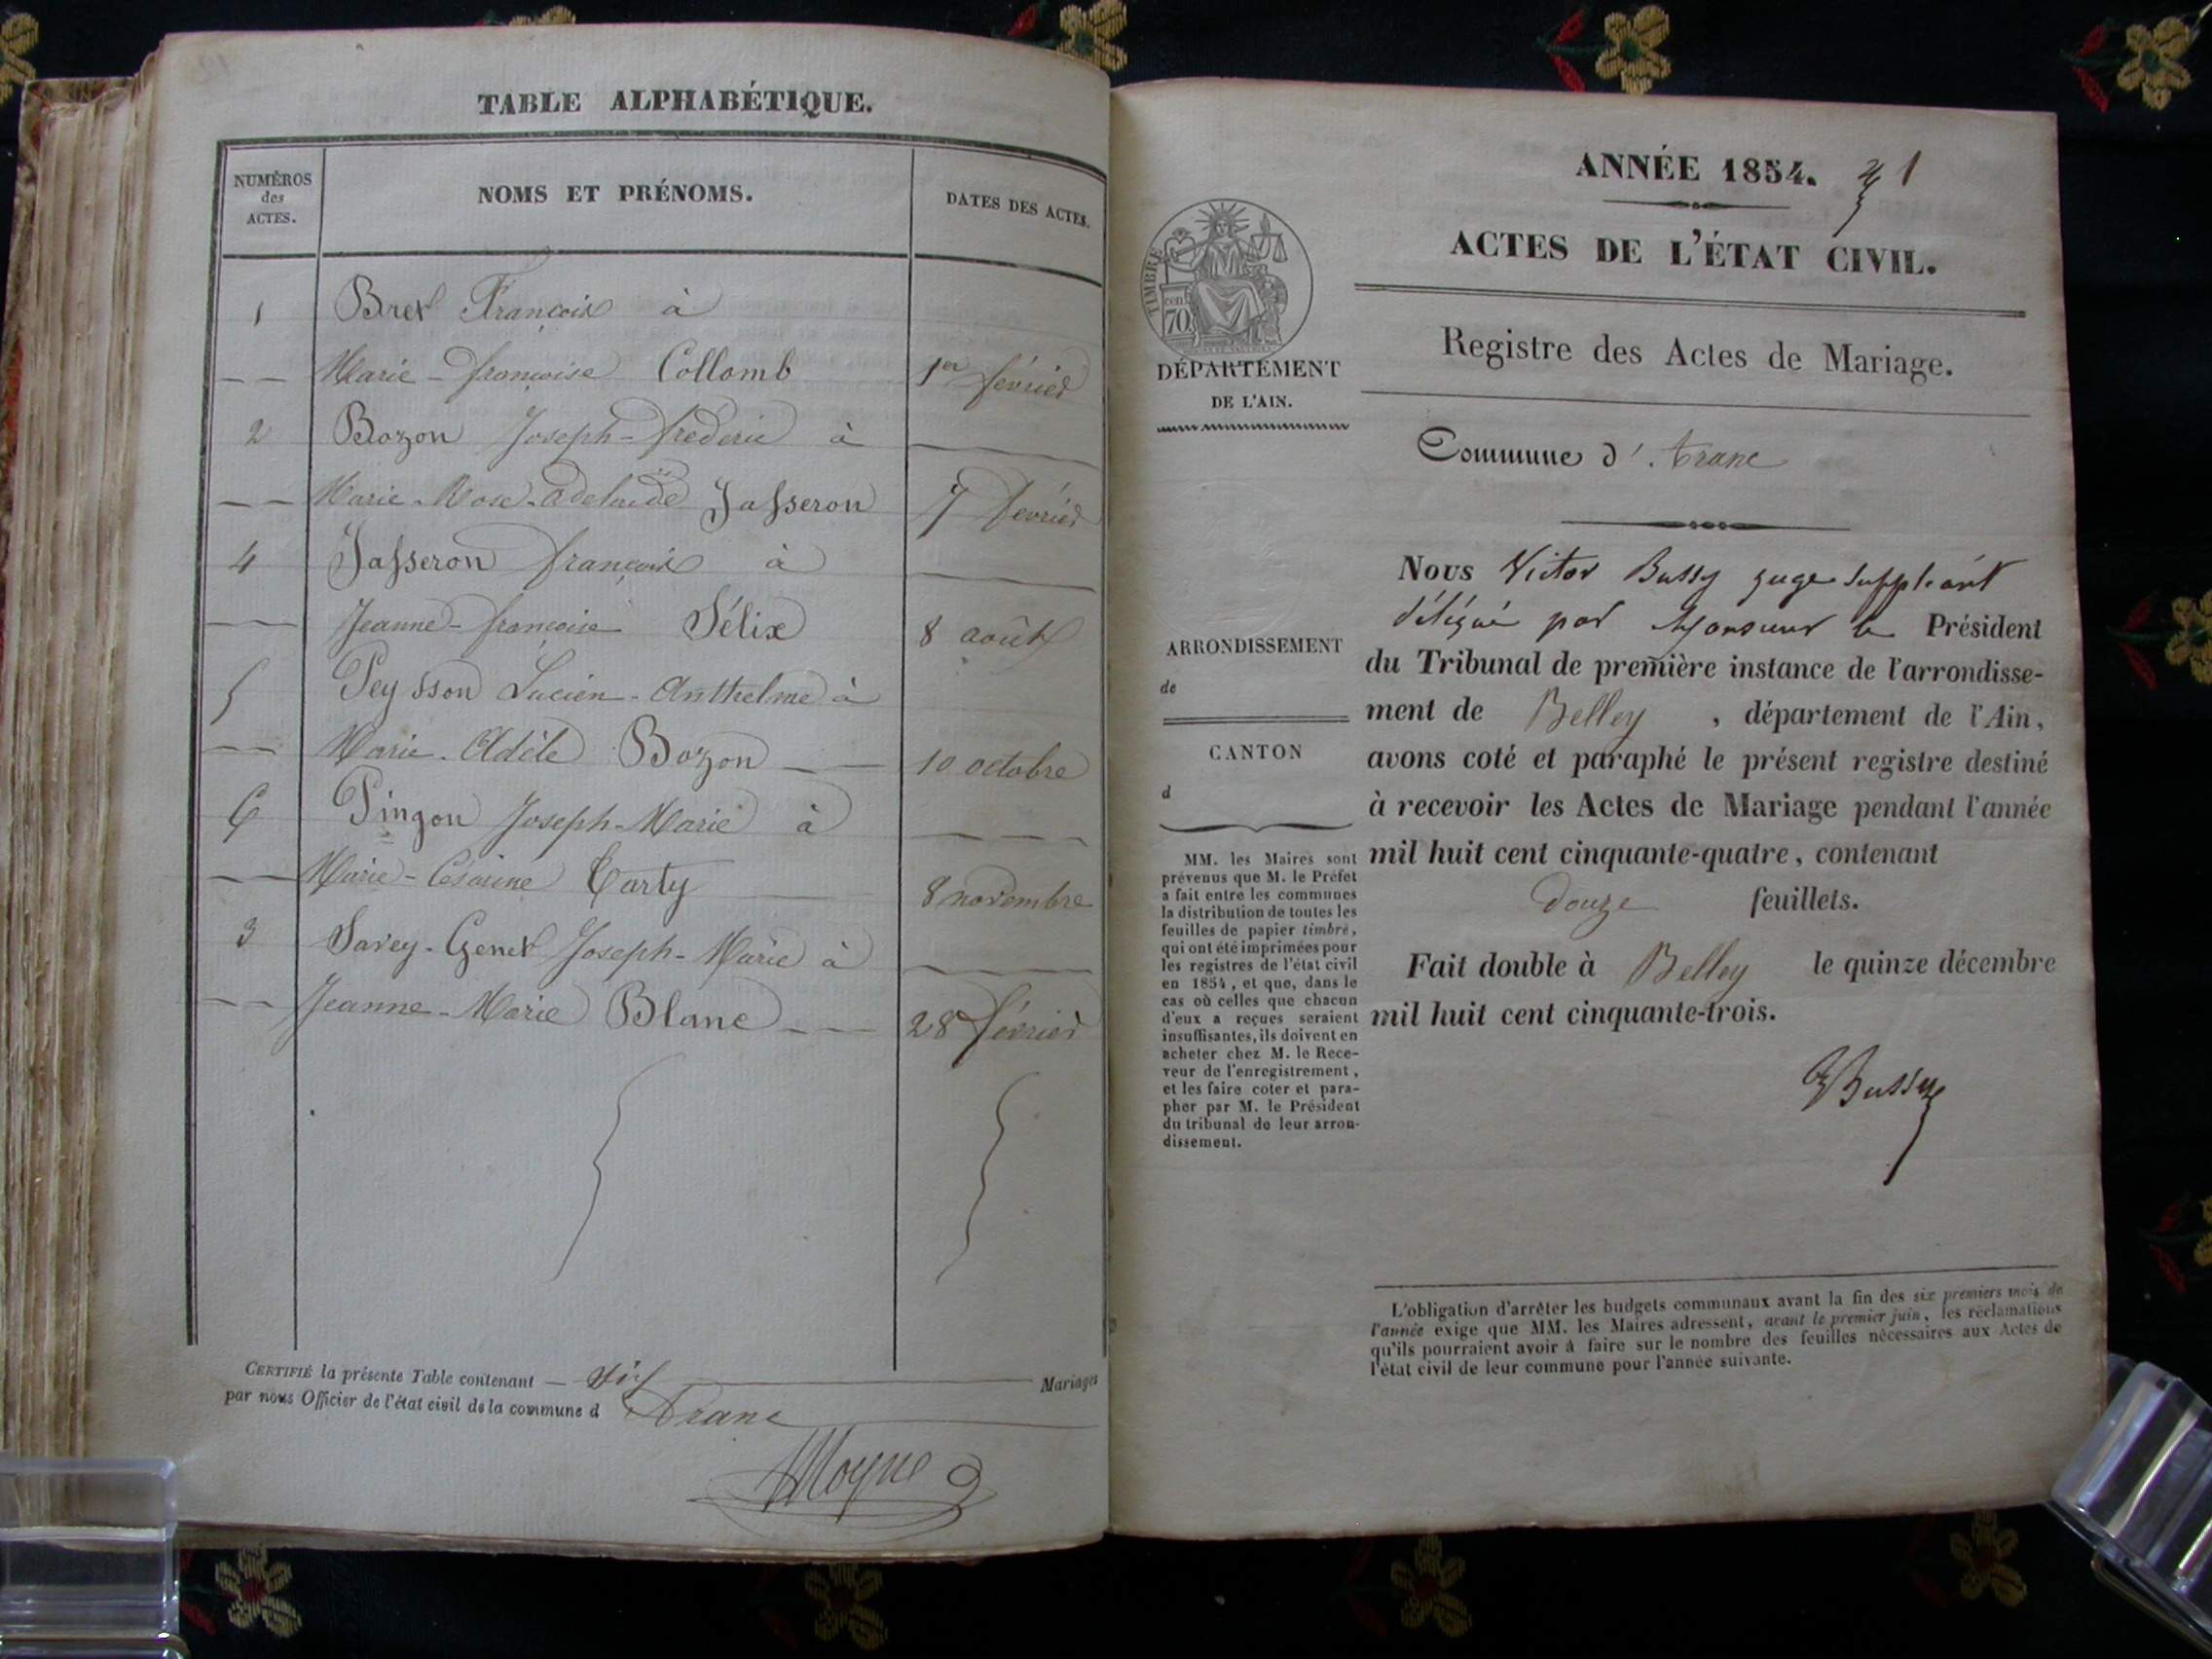 TABLE ALPHABÉTIQUE.
NUMÉROS
des
ACTES.
NOMS ET PRÉNOMS.
DATES DES ACTES.
1 Bret François à
Marie-françoise Collomb 1er février
2 Bozon Joseph-frédéric à
Marie-Rose-adelaïde Jasseron 7 février
4 Jasseron françois à
Jeanne-françoise Sélix 8 août
5 Peysson Lucien-Anthelme à
Marie-Adèle Bozon 10 octobre
6 Pingon Joseph-Marie à
Marie-Césarine Carty 8 novembre
3 Savey-Genet Joseph-Marie à
Jeanne-Marie Blanc 28 février
CERTIFIÉ la présente Table contenant — six Mariages
par nous Officier de l'état civil de la commune d Aranc
Moyne
ANNÉE 1854. 1
ACTES DE L'ÉTAT CIVIL.
Registre des Actes de Mariage.
TIMBRE
70 cent
DÉPARTEMENT
DE L'AIN.
Commune d'Aranc
Nous Victor Bussy juge suppléant
délégué par Monsieur le Président
du Tribunal de première instance de l'arrondisse-
ment de Belley, département de l'Ain,
avons coté et paraphé le présent registre destiné
à recevoir les Actes de Mariage pendant l'année
mil huit cent cinquante-quatre, contenant
douze feuillets.
Fait double à Belley le quinze décembre
mil huit cent cinquante-trois.
Bussy
ARRONDISSEMENT
de
CANTON
d
MM. les Maires sont
prévenus que M. le Préfet
a fait entre les communes
la distribution de toutes les
feuilles de papier timbré,
qui ont été imprimées pour
les registres de l'état civil
en 1854, et que, dans le
cas où celles que chacun
d'eux a reçues seraient
insuffisantes, ils doivent en
acheter chez M. le Rece-
veur de l'enregistrement,
et les faire coter et para-
pher par M. le Président
du tribunal de leur arron-
dissement.
L'obligation d'arrêter les budgets communaux avant la fin des six premiers mois de
l'année exige que MM. les Maires adressent, avant le premier juin, les réclamations
qu'ils pourraient avoir à faire sur le nombre des feuilles nécessaires aux Actes de
l'état civil de leur commune pour l'année suivante.